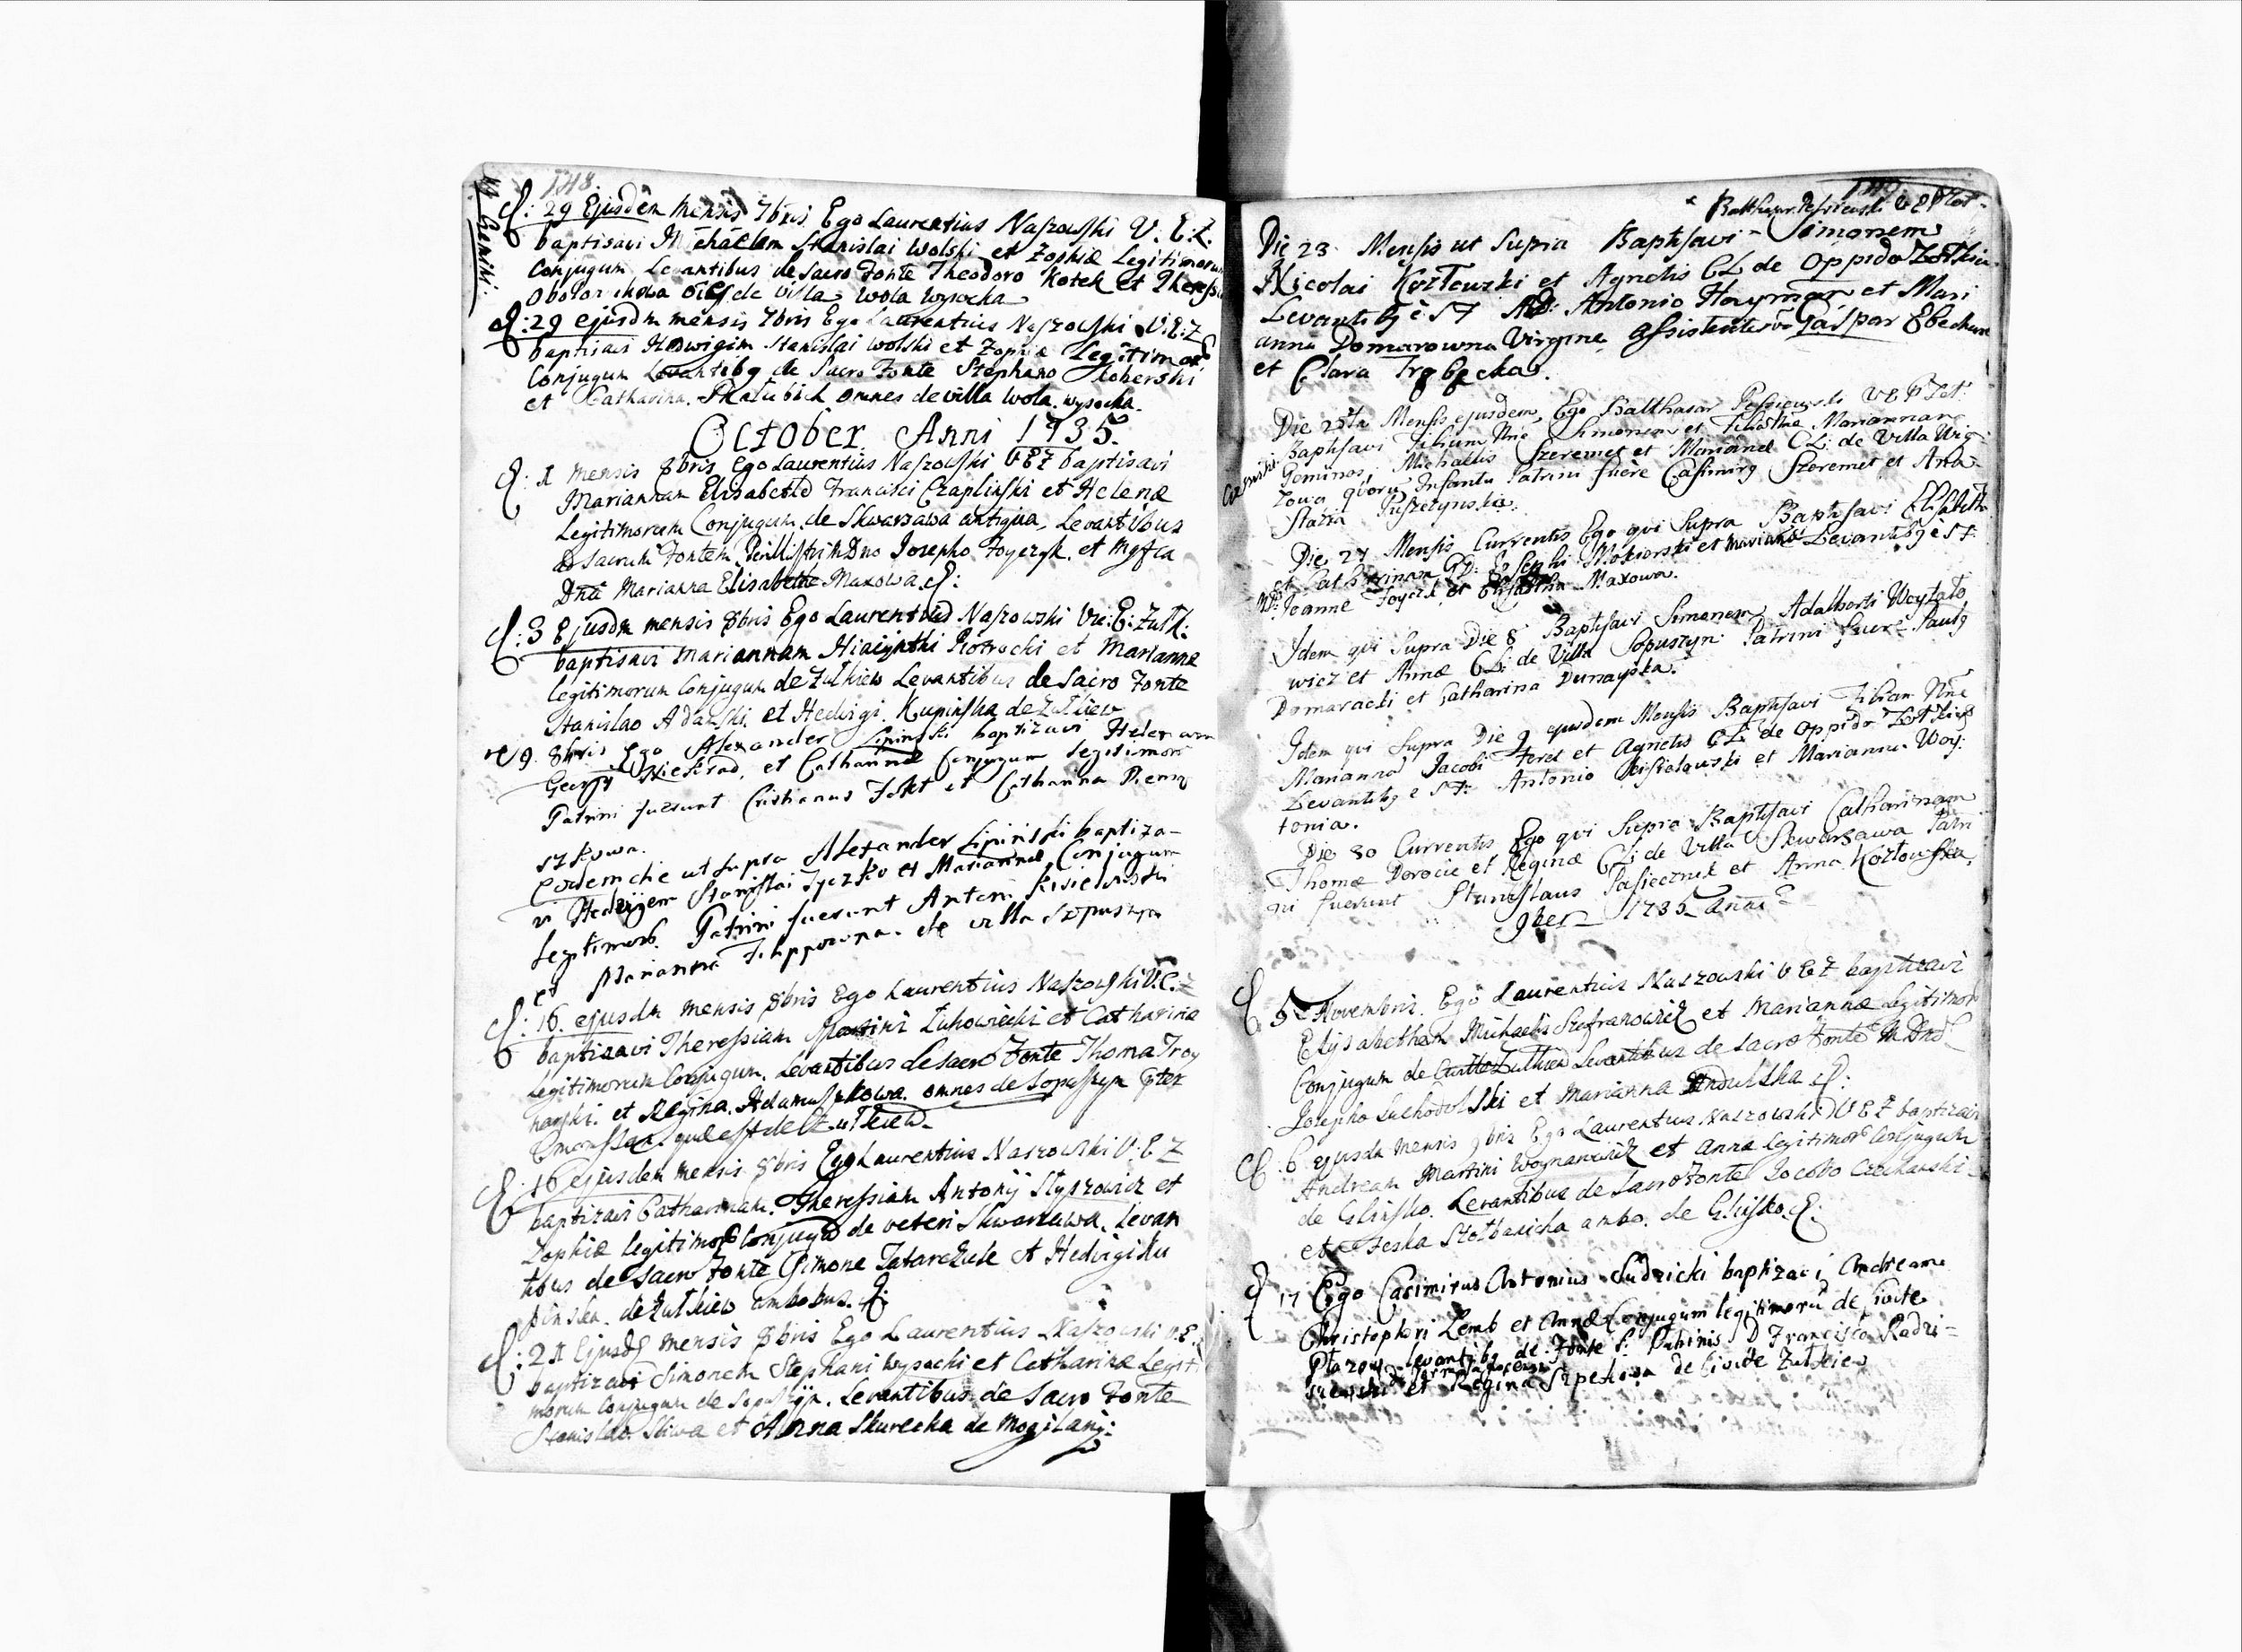 148
Gemini.
29 Ejusdem Mensis 7bris Ego Laurentius Naszowski V. E. Z.
baptisavi Michaelem Stanislai Wolski et Zophiæ Legitimorum
Conjugum Levantibus de Sacro Fonte Theodoro Kotek et
de villa Wola Wysocka
29 ejusdm mensis 7bris Ego Laurentius Naszowski V: E: Z
baptisavi Hedwigim Stanislai Wolski et Zophiæ Legitimor
Conjugum Levantibg de Sacro Fonte Stephano Skoberski
et Catharina omnes de villa Wola wysocka.
October Anni 1735.
1 mensis 8bris Ego Laurentius Naszowski V E Z baptisavi
Mariannam Elisabetta Francisci Czaplinski et Helenæ
Legitimorum Conjugum de Skwarzawa antiqua, Levantibus
Sacrum Fontem Josepho Foyczyk et Mgfca
Dnã Marianna Elisabetha Maxowa
3 Ejusdm mensis 8bris Ego Laurentius Naszowski V: E: Zulk:
baptisavi Mariannam Hiacynthi Piotrocki et Marianne
legitimorum Conjugum de Zulkiew Levantibus de Sacro Fonte
Stanislao Adazski et Hedvigi Kupinska de Zulkiew
9 8bris Ego Alexander Lipinski baptizavi Helenam
Georgy Nieskrad, et Catharinæ Conjugum legitimorũ
Patrini fuerunt Cristianus Fokt et Catharina
szkowa.
Eodem die ut supra Alexander Lipinski baptiza-
vi Hedvigem Stanislai Tyczko et Mariannæ Conjugum
legtimorũ. Patrini fuerunt Antoni Kisielewski
et Marianna Filippowna de villa Sopuszyn
16. ejusdm mensis 8bris Ego Laurentius Naszowski V. E. Z
baptizavi Theressiam Martini Zukowiecki et Catharinæ
Legitimorum Conjugum. Levantibus de Sacro Fonte Thoma Troy
nawski. et Regina Adamuszkowa. omnes de Sopuszyn
quæ est de Zulkiew
16 ejusdem mensis 8bris Ego Laurentius Naszowski V: E Z
baptizavi Catharinam. Theressiam Antonÿ Slyszowicz et
Zophiæ legitimor Conjugũ de veteri Skwarzawa. Levan
tibus de Sacro Fonte Simone Tatarczuk et Hedvigi Ku
pinska. de Zulkiew ambobus.
21 Ejusd mensis 8bris Ego Laurentius Naszowski V. E.
baptizavi Simonem Stephani Wysocki et Catharinæ Legiti
morum Conjugum de Sopuszyn. Levantibus de Sacro Fonte
Stanislao Sliwa et Anna Skurecka de Mogilany:
149
Balthasar V E P
Die 23 Mensis ut Supra Baptisavi Simonem
Nicolai Kozlewski et Agnetis CL de Oppido Zolkiew
Levantibg è SF Antonio Haymar et Mari
anna Domarowna Virgine, Assistentibus Gaspar
et Clara
Die 25ta Mensis ejusdem, Ego Balthasar V E P
Baptisavi Filium Nnẽ Simonem et Filiã Nnẽ Mariannam
Gemini
Geminos, Michaelis Szeremet et Mariannæ CL: de Villa Wig-
zowa quorũ Infantũ Patrini fuêre Casimirg Szeremet et Ana-
stazia Puszczynska.
Die 27 Mensis Currentis Ego qui Supra Baptisavi Elisabeth
et Catharinam Mokiorski et Mariannæ Levantibg è SF.
Joanne Foyczk et Elisabetha Maxowa.
Idem qui Supra Die 8 Baptisavi Simonem Adalberti Woytalo
wicz et Annæ CL: de Villa Sopuszyn Patrini fuere Paulg
Domaracki et Catharina Dunayska.
Idem qui Supra Die 9 ejusdem Mensis Baptisavi Filiam Nnẽ
Mariannã Jacobi Feret et Agnetis CL: de Oppido Zolkiew
Levantibg e SF: Antonio et Marianna Woy:
tonia.
Die 30 Currentis Ego qui Supra Baptisavi Catharinam
Thomæ et Reginæ CL: de Villa Skwarzawa Patri
ni fuerunt Stanislaus Pasiecznik et Anna Kozlowska.
9ber 1735 Anni
5 Novembris. Ego Laurentius Naszowski V E Z baptizavi
Elysabetham Michaelis Szafranowicz et Mariannæ legitimor
Conjugum de Zulkiew Levantibus de Sacro Fonte M Dno
Josepho Suchodolski et Marianna
6 ejusdm mensis 9bris Ego Laurentius Naszowski V E Z baptizavi
Andream Martini Woynarowicz et Annæ legitimor Conjugum
de Glinsko. Levantibus de Sacro Fonte Jacobo Czecharski
et Feska Stolbanicha ambo. de Glinsko.
17 Ego Casimirus Antonius Sudzicki baptizavi Andream
Christophori Lemb et Annæ Conjugum legitimorũ de Civite
levantibg de Fonte S. Patrinis D Francisco Radzi-
et Regina Szpekowa de Civite Zulkiew